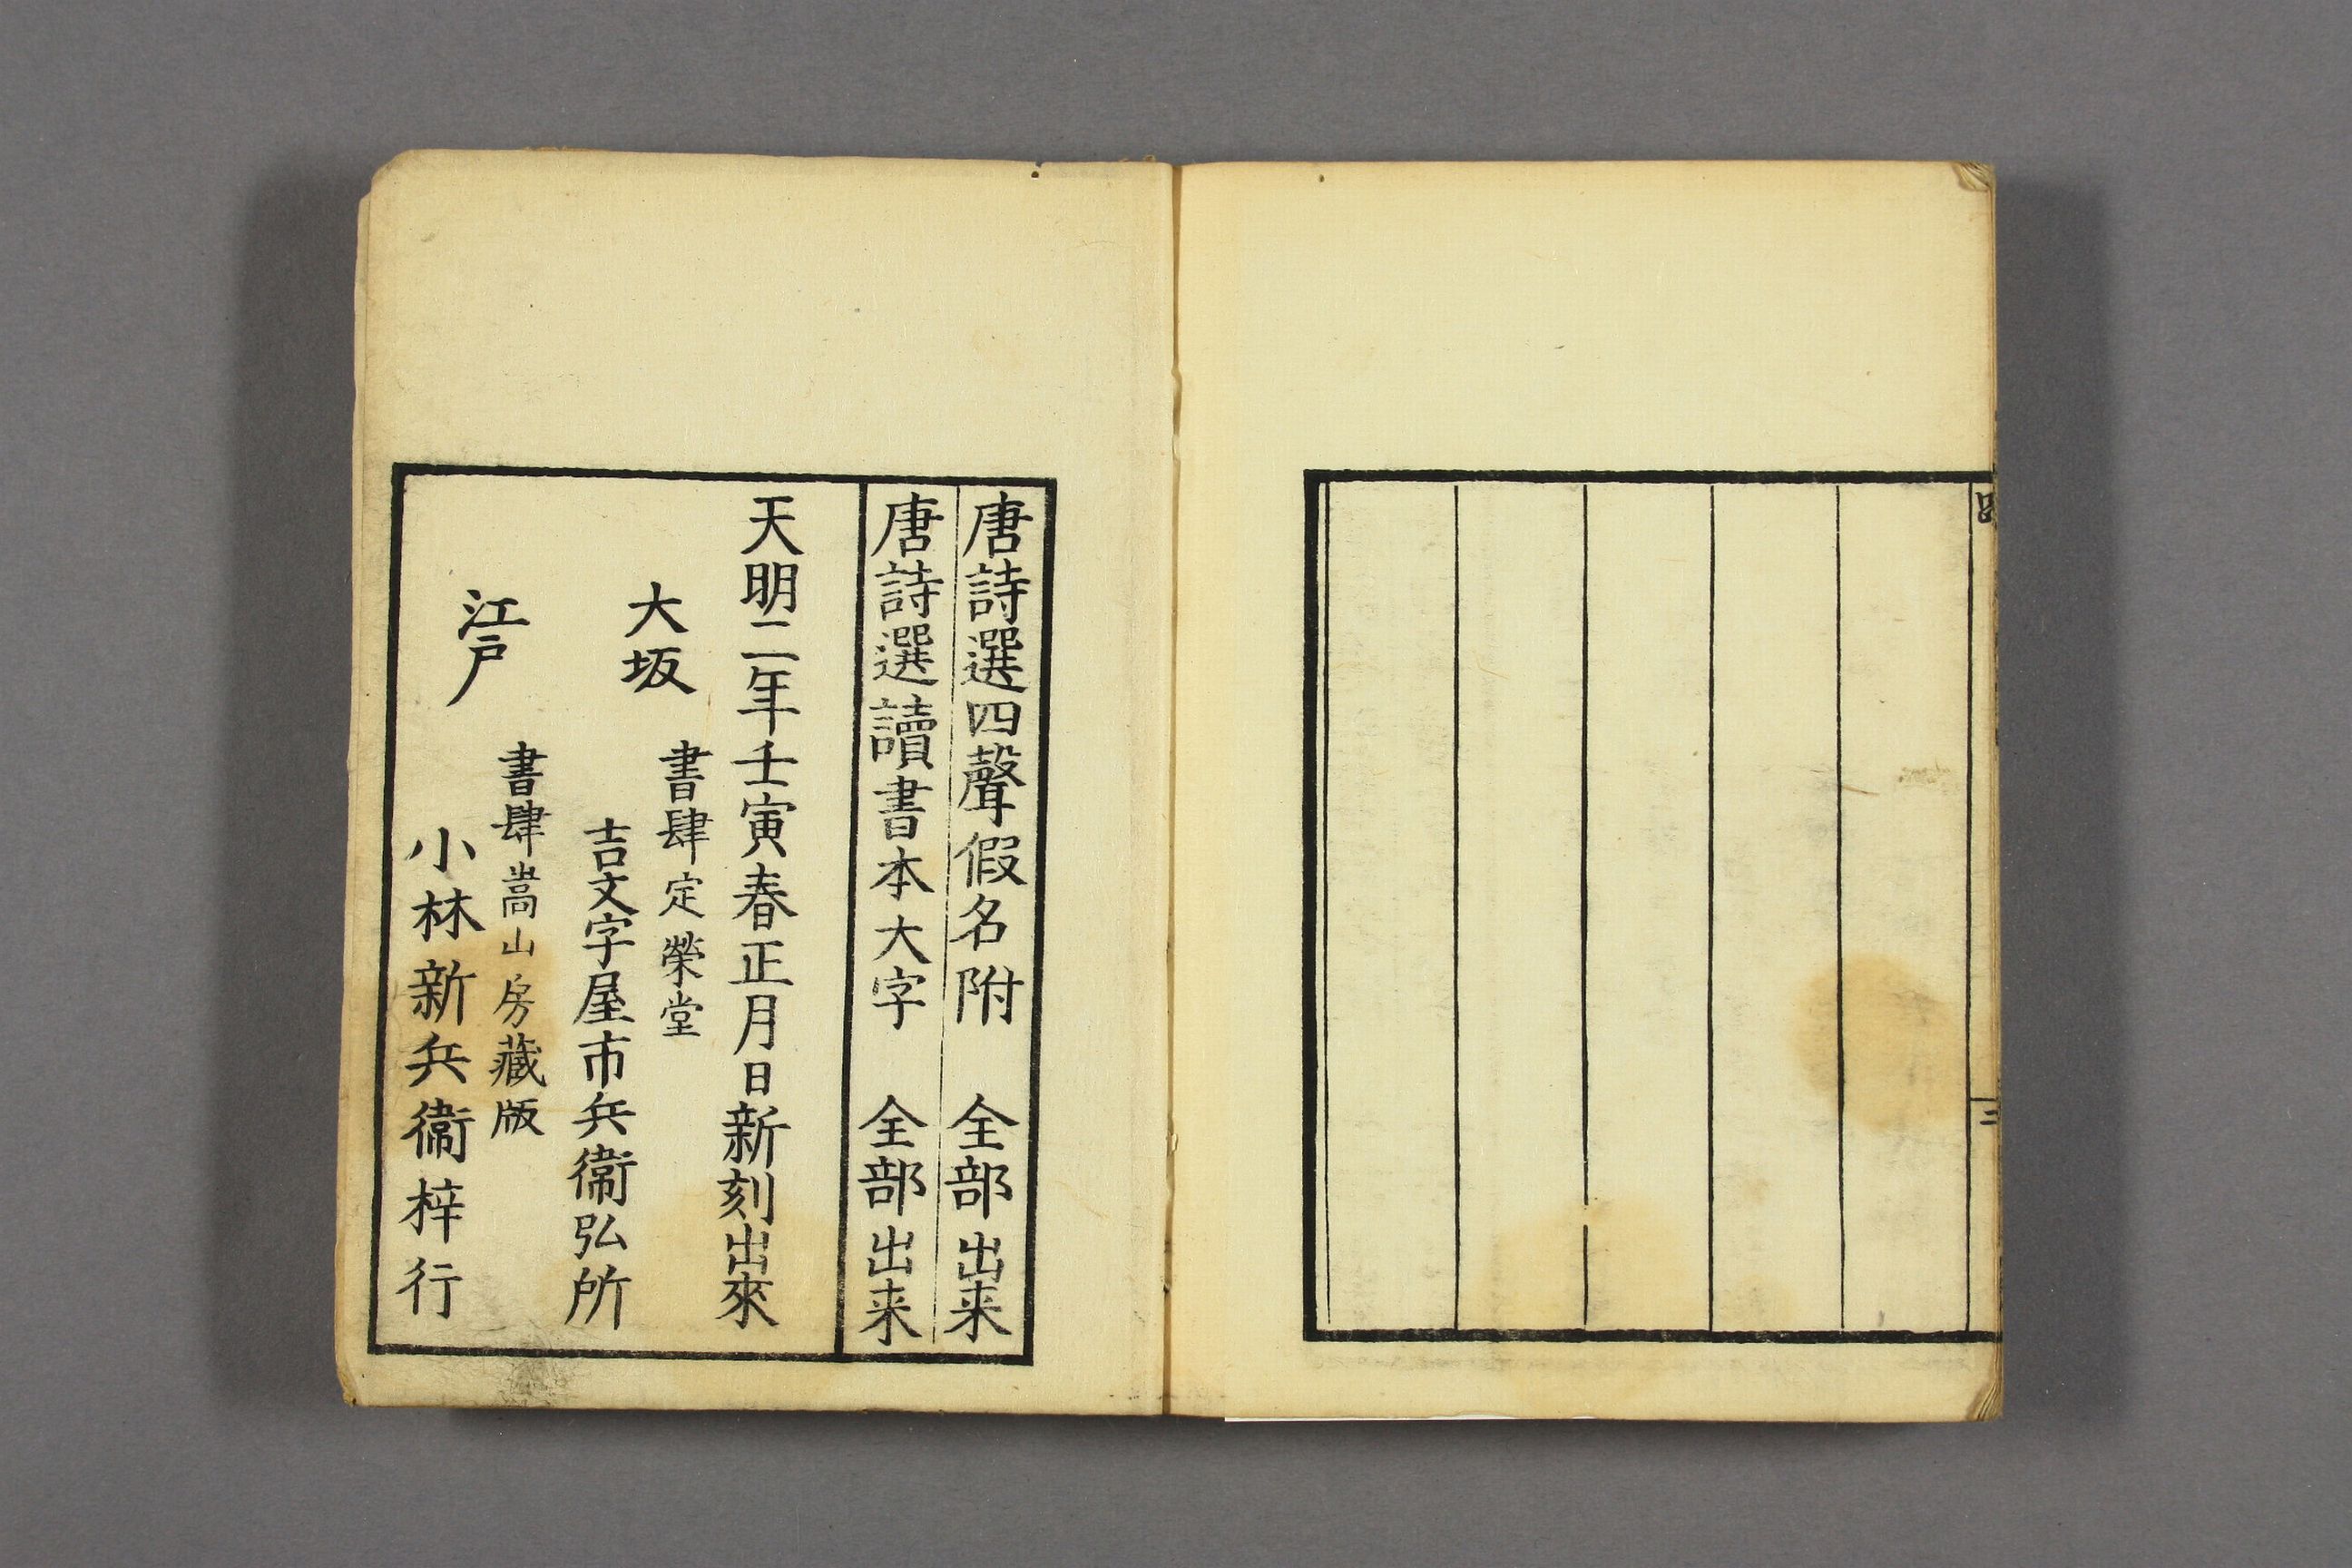 三
唐詩選四聲假名附　全部出来
唐詩選讀書本大字　全部出来
天明二年壬寅春正月日新刻出來
大坂
書肆定榮堂
吉文字屋市兵衞弘所
江戸
書肆嵩山房藏版
小林新兵衞梓行